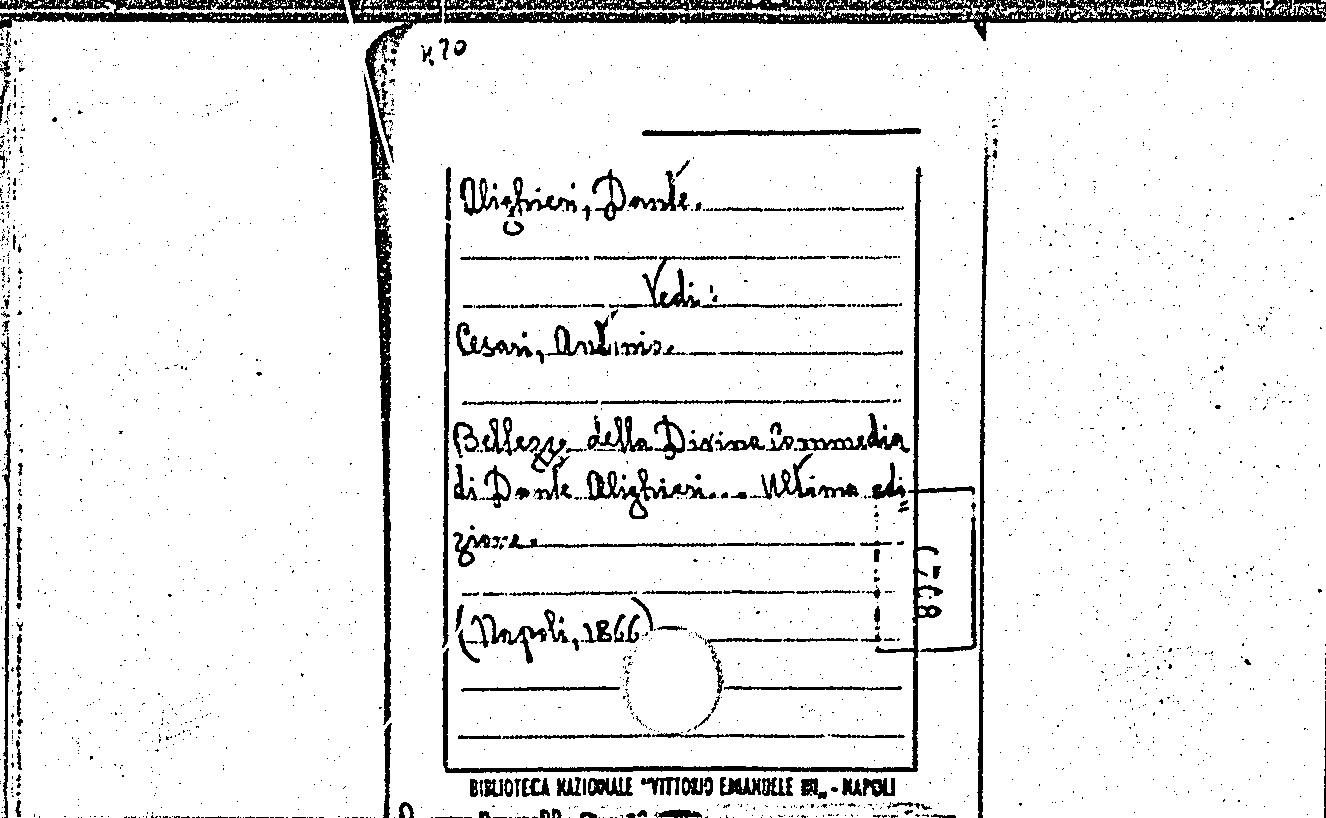 Alighieri, Dante.
Vedi:
Cesari, Antonio.
Bellezze della Divina Commedia
di Dante Alighieri... Ultima edi
zione.
(Napoli, 1866)
BIBLIOTECA NAZIONALE "VITTORIO EMANUELE III„ - NAPOLI